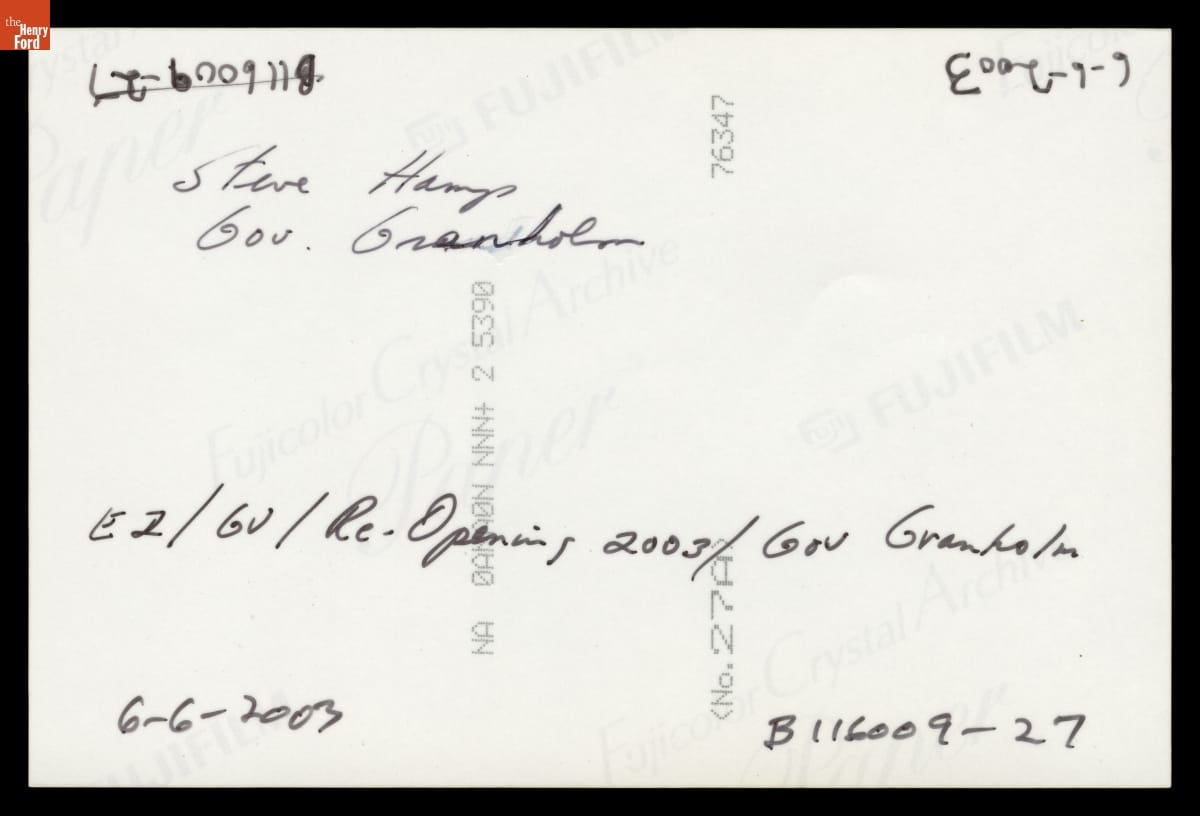 the
Henry
Ford
B116009-27
6-6-2003
76347
Steve Hamp
Gov. Granholm
FUJIFILM
Fujicolor Crystal Archive
Paper
FUJIFILM
NA 0ANA0N NNN+ 2 5390
EI/GV/Re-Opening 2003/Gov Granholm
<No.27A>
Fujicolor Crystal Archive
Paper
FUJIFILM
6-6-2003
B116009-27